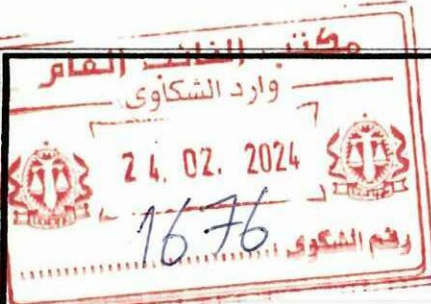 مكتب النائب العام
وارد الشكاوى
24. 02. 2024
1676
رقم الشكوى